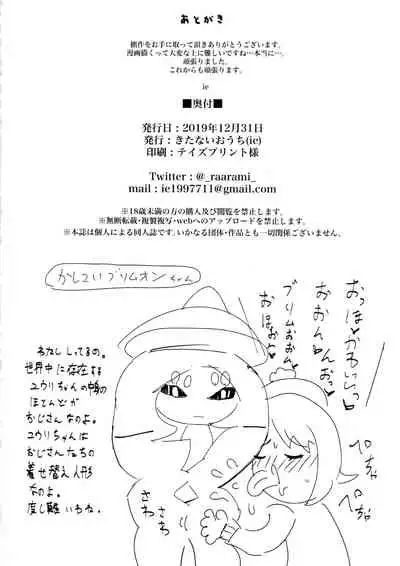 あとがき
拙作をお手に取って頂きありがとうございます。
漫画描くって大変な上に難しいですね…本当に…。
頑張りました。
これからも頑張ります。
ie
■奥付■
発行日：2019年12月31日
発行：きたないおうち(ie)
印刷：テイズプリント様
Twitter：@_raarami_
mail：ie1997711@gmail.com
※18歳未満の方の購入及び閲覧を禁止します。
※無断転載･複製複写･webへのアップロードを禁止します。
※本誌は個人による同人誌です。いかなる団体･作品とも一切関係ございません。
かしこいブリムオンちゃん
おっほ
かわいいっ
おおん
おんおっ
ブリムおおん
おほおお
わたししってるの。
世界中に存在する
ユウリちゃんの中身の
ほとんどが
おじさんなのよ。
ユウリちゃんは
おじさんたちの
着せ替え人形
なのよ。
度し難いわね。
さわ
さわ
ペちゃ
ペちゃ